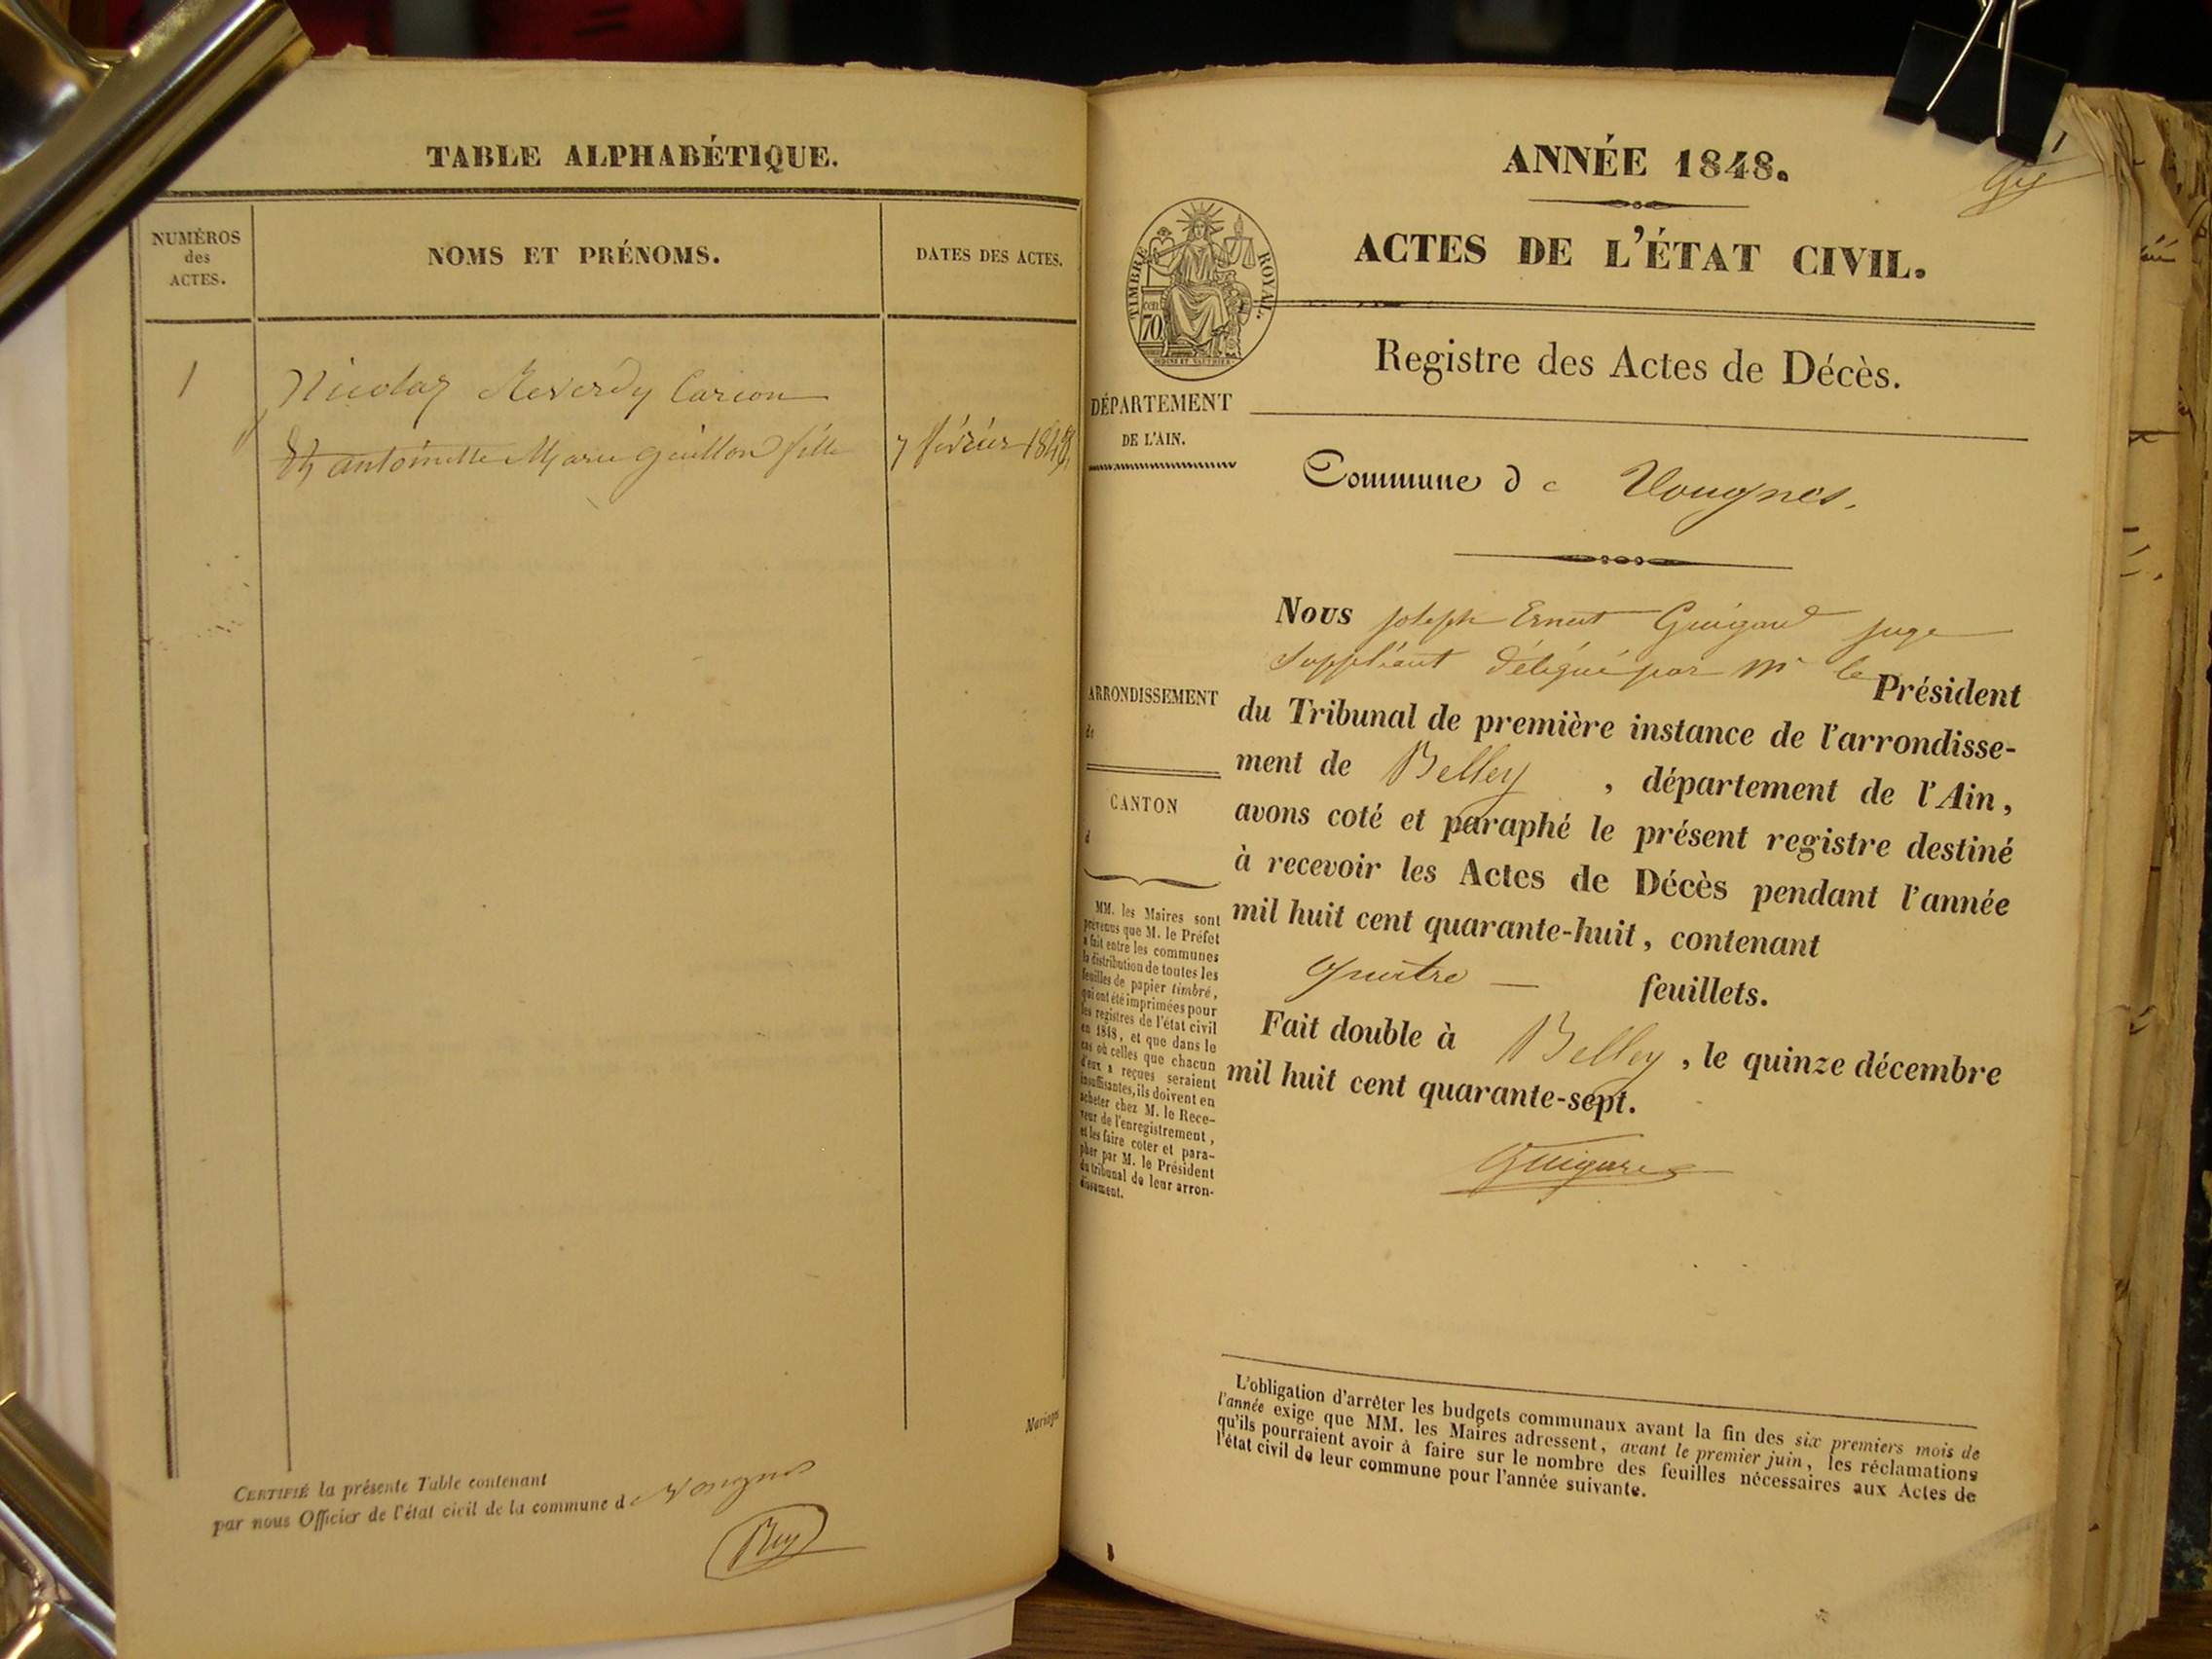 TABLE ALPHABÉTIQUE.
NUMÉROS
des
ACTES.
NOMS ET PRÉNOMS.
DATES DES ACTES.
1
Nicolas Reverdy Garçon
Et antoinette Marie Guillon fille
7 février 1848,
Mariages
CERTIFIÉ la présente Table contenant
par nous Officier de l'état civil de la commune de Vongnes
Rey
ANNÉE 1848.
1
ACTES DE L'ÉTAT CIVIL.
TIMBRE ROYAL.
70
Registre des Actes de Décès.
DÉPARTEMENT
DE L'AIN.
Commune de Vongnes.
Nous joseph Ernest Guigard juge
Suppléant délégué par Mr le Président
du Tribunal de première instance de l'arrondisse-
ment de Belley , département de l'Ain,
avons coté et paraphé le présent registre destiné
à recevoir les Actes de Décès pendant l'année
mil huit cent quarante-huit, contenant
quatre — feuillets.
Fait double à Belley, le quinze décembre
mil huit cent quarante-sept.
ARRONDISSEMENT
de
CANTON
d
MM. les Maires sont
prévenus que M. le Préfet
a fait entre les communes
la distribution de toutes les
feuilles de papier timbré,
qui ont été imprimées pour
les registres de l'état civil
en 1848, et que dans le
cas où celles que chacun
d'eux a reçues seraient
insuffisantes, ils doivent en
acheter chez M. le Rece-
veur de l'enregistrement,
et les faire coter et para-
pher par M. le Président
du tribunal de leur arron-
dissement.
L'obligation d'arrêter les budgets communaux avant la fin des six premiers mois de
l'année exige que MM. les Maires adressent, avant le premier juin, les réclamations
qu'ils pourraient avoir à faire sur le nombre des feuilles nécessaires aux Actes de
l'état civil de leur commune pour l'année suivante.